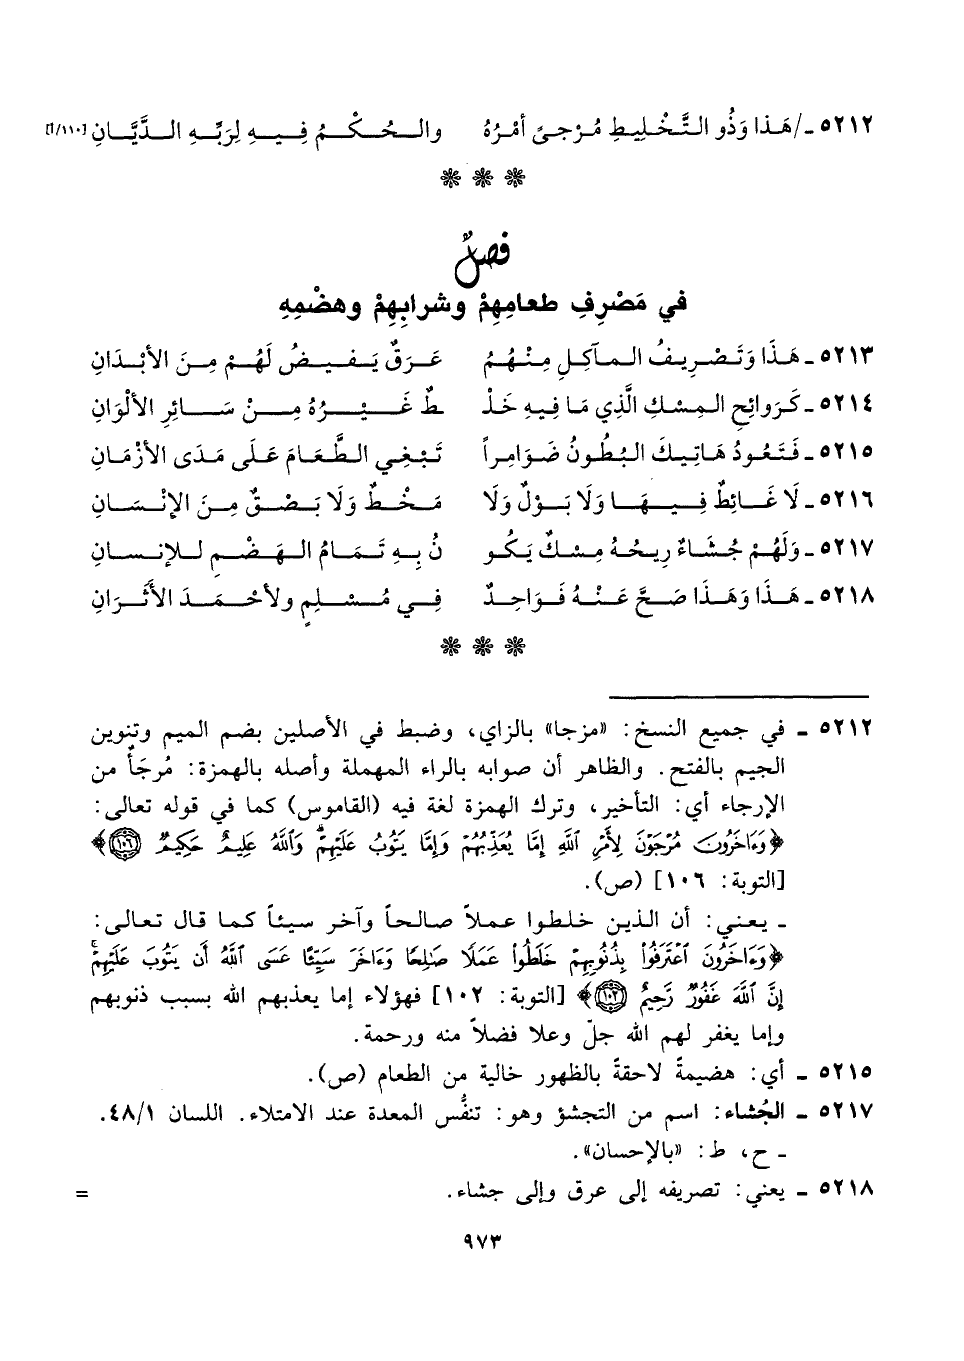 ٥٢١٢ ـ /هَذا وَذُو التَّخْلِيطِ مُرْجىً أمْرُهُ والحُكْمُ فِيهِ لِرَبِّهِ الدَّيَّانِ [١١٠/أ]
فصلٌ
في مَصْرِفِ طعامِهِمْ وشرابِهِمْ وهضْمِهِ
٥٢١٣ ـ هَذَا وَتَصْرِيفُ المآكِلِ مِنْهُمُ عَرَقٌ يَفيضُ لَهُمْ مِنَ الأبْدَانِ
٥٢١٤ ـ كَرَوائِحِ المِسْكِ الَّذِي مَا فِيهِ خَلْ طٌ غَيْرُهُ مِنْ سَائِرِ الألْوَانِ
٥٢١٥ ـ فَتَعُودُ هَاتِيكَ البُطُونُ ضَوَامِراً تَبْغِي الطَّعَامَ عَلَى مَدَى الأزْمَانِ
٥٢١٦ ـ لَا غَائِطٌ فِيهَا وَلَا بَوْلٌ وَلَا مَخْطٌ وَلَا بَصْقٌ مِنَ الإنْسَانِ
٥٢١٧ ـ وَلَهُمْ جُشَاءٌ رِيحُهُ مِسْكٌ يَكُو نُ بِهِ تَمَامُ الهَضْمِ للإنسانِ
٥٢١٨ ـ هَذَا وَهَذَا صَحَّ عَنْهُ فَوَاحِدٌ فِي مُسْلِمٍ ولأحْمَدَ الأثَرَانِ
٥٢١٢ ـ في جميع النسخ: «مزجا» بالزاي، وضبط في الأصلين بضم الميم وتنوين
الجيم بالفتح. والظاهر أن صوابه بالراء المهملة وأصله بالهمزة: مُرجَأٌ من
الإرجاء أي: التأخير، وترك الهمزة لغة فيه (القاموس) كما في قوله تعالى:
﴿وَءَاخَرُونَ مُرْجَوْنَ لِأَمْرِ ٱللَّهِ إِمَّا يُعَذِّبُهُمْ وَإِمَّا يَتُوبُ عَلَيْهِمْ ۗ وَٱللَّهُ عَلِيمٌ حَكِيمٌ ۝١٠٦﴾
[التوبة: ١٠٦] (ص).
ـ يعني: أن الذين خلطوا عملاً صالحاً وآخر سيئاً كما قال تعالى:
﴿وَءَاخَرُونَ ٱعْتَرَفُوا۟ بِذُنُوبِهِمْ خَلَطُوا۟ عَمَلًا صَٰلِحًا وَءَاخَرَ سَيِّئًا عَسَى ٱللَّهُ أَن يَتُوبَ عَلَيْهِمْ ۚ
إِنَّ ٱللَّهَ غَفُورٌ رَّحِيمٌ ۝١٠٢﴾ [التوبة: ١٠٢] فهؤلاء إما يعذبهم الله بسبب ذنوبهم
وإما يغفر لهم الله جلّ وعلا فضلاً منه ورحمة.
٥٢١٥ ـ أي: هضيمةً لاحقةً بالظهور خالية من الطعام (ص).
٥٢١٧ ـ الجُشاء: اسم من التجشؤ وهو: تنفُّس المعدة عند الامتلاء. اللسان ٤٨/١.
ـ ح، ط: «بالإحسان».
٥٢١٨ ـ يعني: تصريفه إلى عرق وإلى جشاء. =
٩٧٣